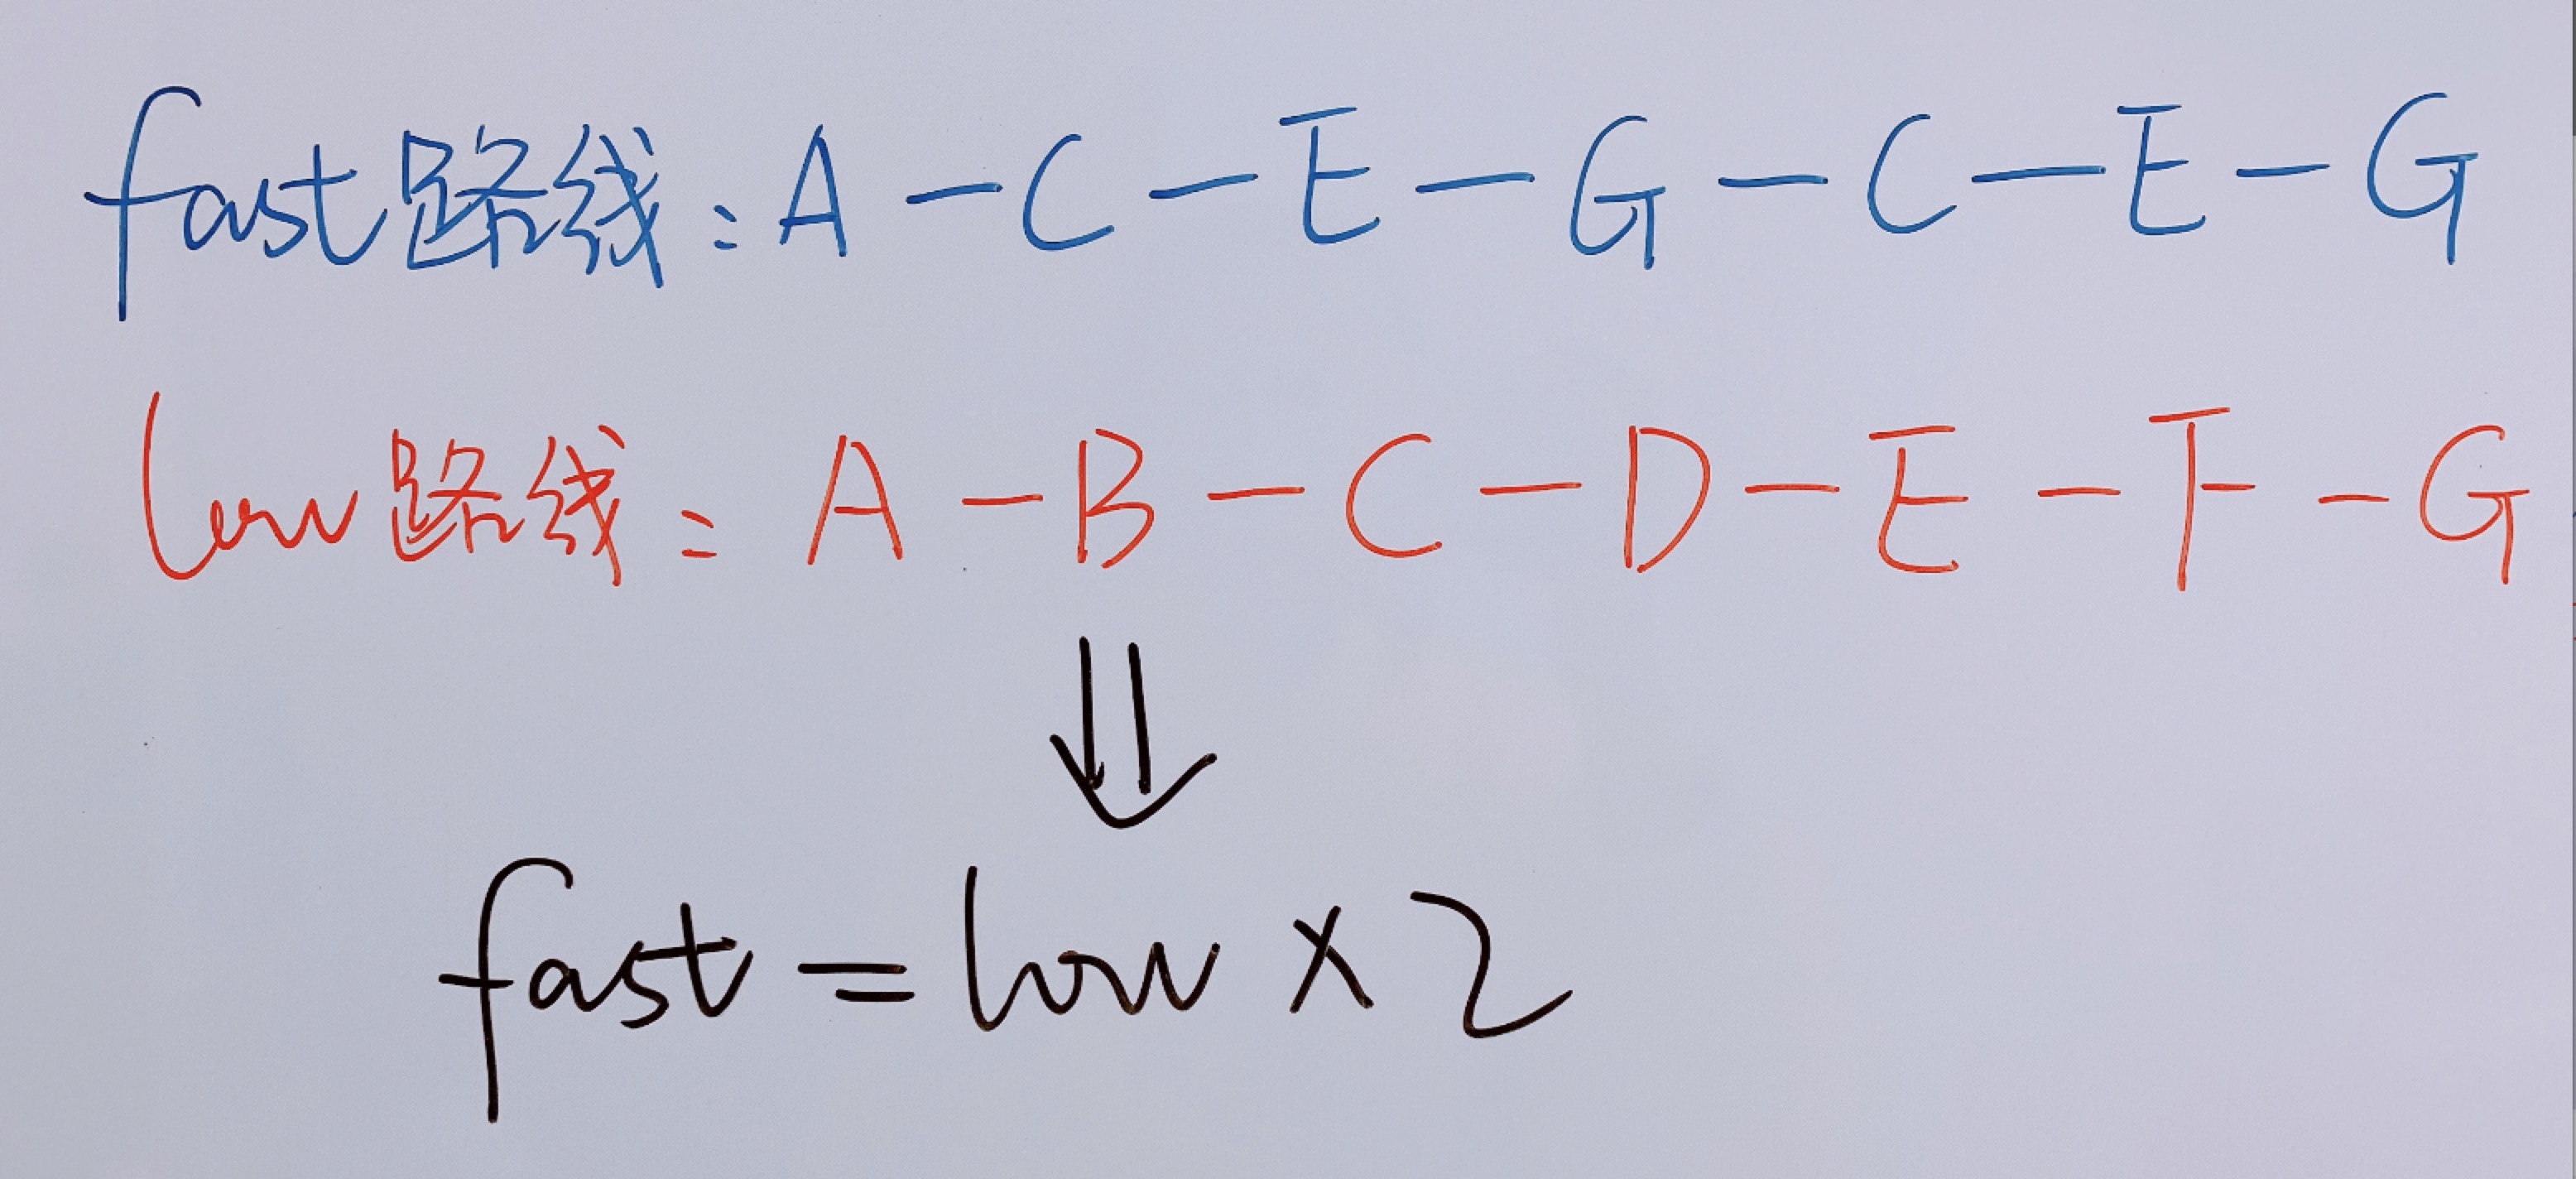 fast路线：A-C-E-G-C-E-G
low路线：A-B-C-D-E-F-G
⇓
fast=low×2